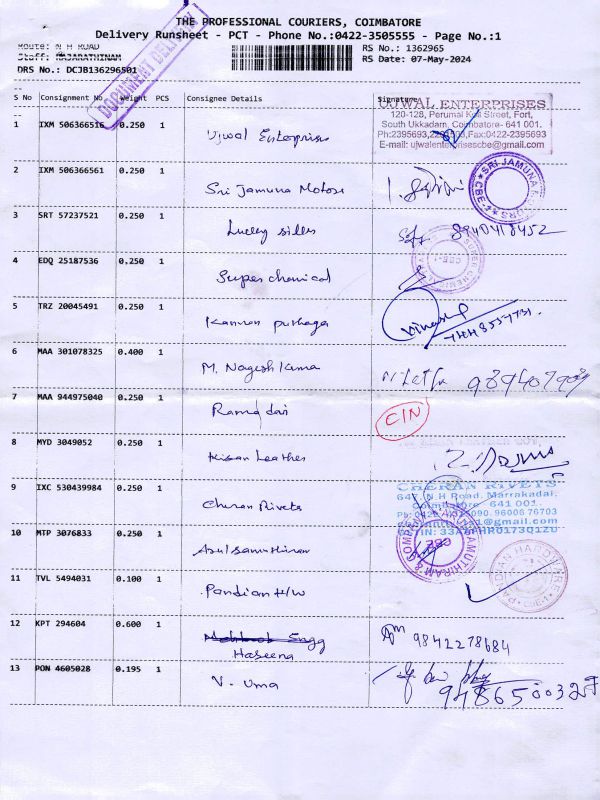 THE PROFESSIONAL COURIERS, COIMBATORE
Delivery Runsheet - PCT - Phone No.:0422-3505555 - Page No.:1
Route: N H ROAD
Staff: RAJARATHINAM
DRS No.: DCJB136296501
RS No.: 1362965
RS Date: 07-May-2024
DOCUMENT DELIVERY
S No Consignment No Weight PCS Consignee Details Signature
1 IXM 506366516 0.250 1 Ujwal Enterprises
UJWAL ENTERPRISES
120-128, Perumal Koil Street, Fort,
South Ukkadam, Coimbatore- 641 001.
Ph:2395693, Fax:0422-2395693
E-mail: ujwalenterprisescbe@gmail.com
2 IXM 506366561 0.250 1 Sri Jamuna Motors
SRI JAMUNA
CBE-1
3 SRT 57237521 0.250 1 Lucky silks 8940418452
4 EDQ 25187536 0.250 1 Super chemical
5 TRZ 20045491 0.250 1 Kannan
6 MAA 301078325 0.400 1 M. Nagesh Kumar
7 MAA 944975040 0.250 1 Rama devi C/N
8 MYD 3049052 0.250 1 Kisan Leather
9 IXC 530439984 0.250 1 Cheran Rivets
CHERAN RIVETS
647, N H Road, Marrakadai,
Coimbatore - 641 001.
96006 76703
10 MTP 3076833 0.250 1
11 TVL 5494031 0.100 1 Pandian H/W
PANDIAN HARDWARE
12 KPT 294604 0.600 1 Haseena 9842278684
13 PON 4605028 0.195 1 V. Uma